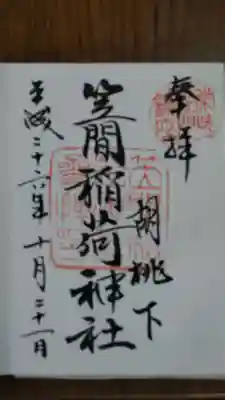 奉拝
胡桃下
笠間稲荷神社
平成二十六年十月二十一日